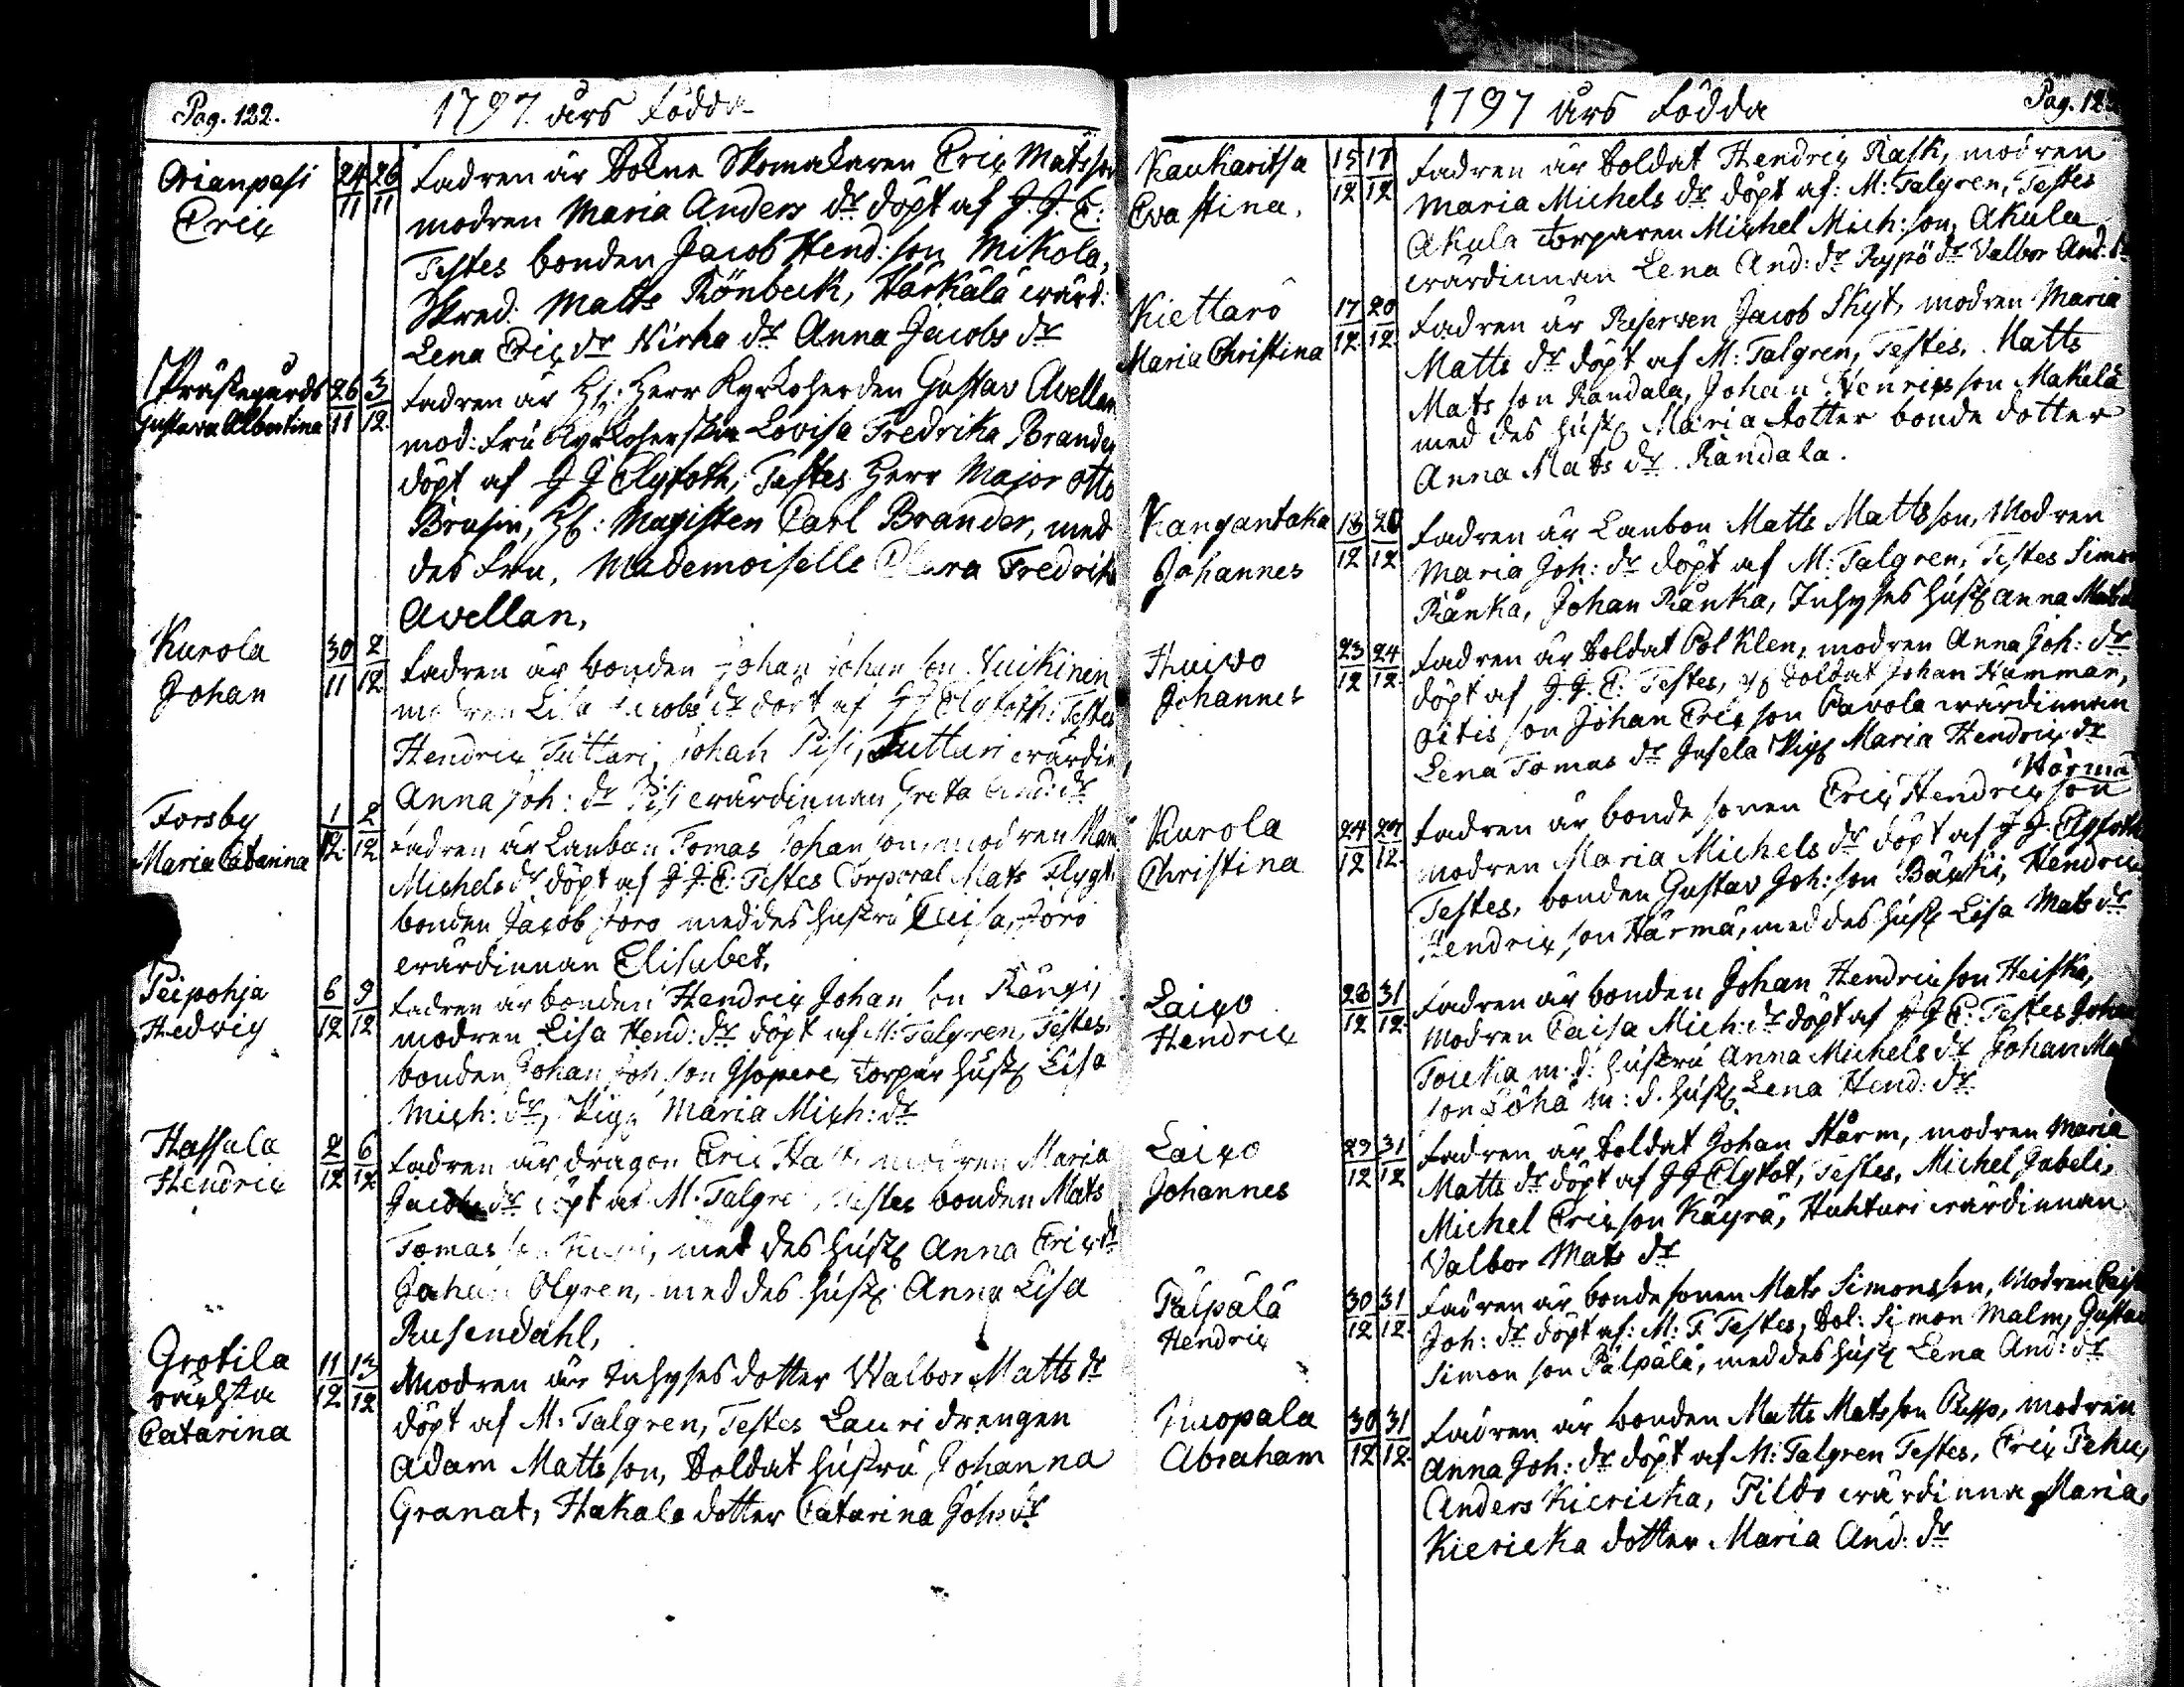 Pag. 122.
1797 års födda
Orianpasi
Eric
24/11 26/11
Fadren är Sokne Skomakaren Eric Matsson
modren Maria Anders dr döpt af J. J. C:
Testes bonden Jacob Hend: son Mikola,
Skred. Matts Rönbeck, Härkälä wärd:
Lena Eric dr Nirha dr Anna Jacobs dr
Prästegårds
Gustava Albertina
26/11 3/12
Fadren är Hr: Herr Kyrkoherden Gustav Avellan
mod: Fru Kyrkoherskan Lovisa Fredrika Brander
döpt af J J Clyfoth, Testes Herr Major Otto
Brusin, Hr: Magisten Carl Brander, med
des Fru, Mademoiselle Fredrika
Avellan,
Kurola
Johan
30/11 2/12
Fadren är bonden Johan Johan son Nuikinen
modren Lisa Jacobs dr döpt af J J Clyfoth: Testes
Hendric Tuttari, Johan Pisi, Tuttari wärdin,
Anna Joh: dr Pisi wärdinnan Greta And: dr
Forsby
Maria Catarina
1/12 2/12
Fadren är Lanbon Tomas Johan son, modren Maria
Michels dr döpt af J. J. C: Testes Corporal Mats Flygt
bonden Jacob Joro med des hustru Caisa, Joro
wärdinnan Elisabet,
Peipohja
Hedvig
6/12 9/12
Fadren är bonden Hendric Johan son Rängi,
modren Lisa Hend: dr döpt af M: Talgren, Testes
bonden Johan Joh son Isopere, Torpar hust Lisa
Mich: dr, Pig Maria Mich: dr
Hassala
Hendric
2/12 6/12
Fadren är dragon Eric modren Maria
Jacobs dr döpt af M. Talgren, Testes bonden Mats
Tomas son med des hust Anna Eric dr
Johan Olgren, med des hust Anna Lisa
Rusendahl,
Grotila
oächta
Catarina
11/12 13/12
Modren är Inhyses dotter Walbor Matts dr
döpt af M: Talgren, Testes Lauri drengen
Adam Matts son, Soldat hustru Johanna
Granat, Hakala dotter Catarina Joh dr
1797 års födda
Pag. 12
Kaukaritsa
Eva Stina.
15/12 17/12
Fadren är Soldat Hendric Rask, modren
Maria Michels dr döpt af: M: Talgren, Testes
Akula Torparen Michel Mich: son, Akula
wärdinnan Lena And: dr Rypö dr Valbor And: dr
Kiettarö
Maria Christina
17/12 20/12
Fadren är Reserven Jacob Skyt, modren Maria
Matts dr döpt af M: Talgren, Testes, Matts
Mats son Randala, Johan Henrics son Makelä
med des hust Maria dotter bonde dotter
Anna Mats dr Randala.
Kangantaka
Johannes
18/12 26/12
Fadren är Lanbon Matts Matts son, Modren
Maria Joh: dr döpt af M: Talgren, Testes Simon
Ränka, Johan Ränka, Inhyses hust Anna
Huivo
Johannes
23/12 24/12
Fadren är Soldat Pol Klen, modren Anna Joh: dr
döpt af J. J. C: Testes, Soldat Johan Hamman,
oitis son Johan Eric son Pavola wärdinnan
Lena Tomas dr Jusela Pig Maria Hendric dr
Kurola
Christina
24/12 27/12
Härmä
Fadren är bonde sonen Eric Hendric son
modren Maria Michels dr döpt af J J Clyfoth
Testes, bonden Gustav Joh: son Bärki, Hendric
Hendric son Härmä, med des hust Lisa Mats dr
Laivo
Hendric
28/12 31/12
Fadren är bonden Johan Hendric son Heiska,
Modren Caisa Mich: dr döpt af J J C: Testes Johan
Touka m: d: hustru Anna Michels dr Johan Mats
son Löhä m: d. hust Lena Hend: dr
Laivo
Johannes
29/12 31/12
Fadren är Soldat Johan Harm, modren Maria
Matts dr döpt af J J Clyfot, Testes, Michel Jabeli,
Michel Eric son Käyrä, Huhturi wärdinnan
Valbor Mats dr
Pälpälä
Hendric
30/12 31/12
Fadren är bonde sonen Mats Simonsson, Modren Cajsa
Joh: dr döpt af: M: T. Testes, Sol: Simon Malm, Gustav
Simon son Pälpälä, med des hust Lena And: dr
Juopala
Abraham
30/12 31/12
Fadren är bonden Matts Mats son Passo, modren
Anna Joh: dr döpt af M: Talgren Testes, Eric Pehu,
Anders Kiericka, Pilto wärdinna Maria,
Kiericka dotter Maria And: dr